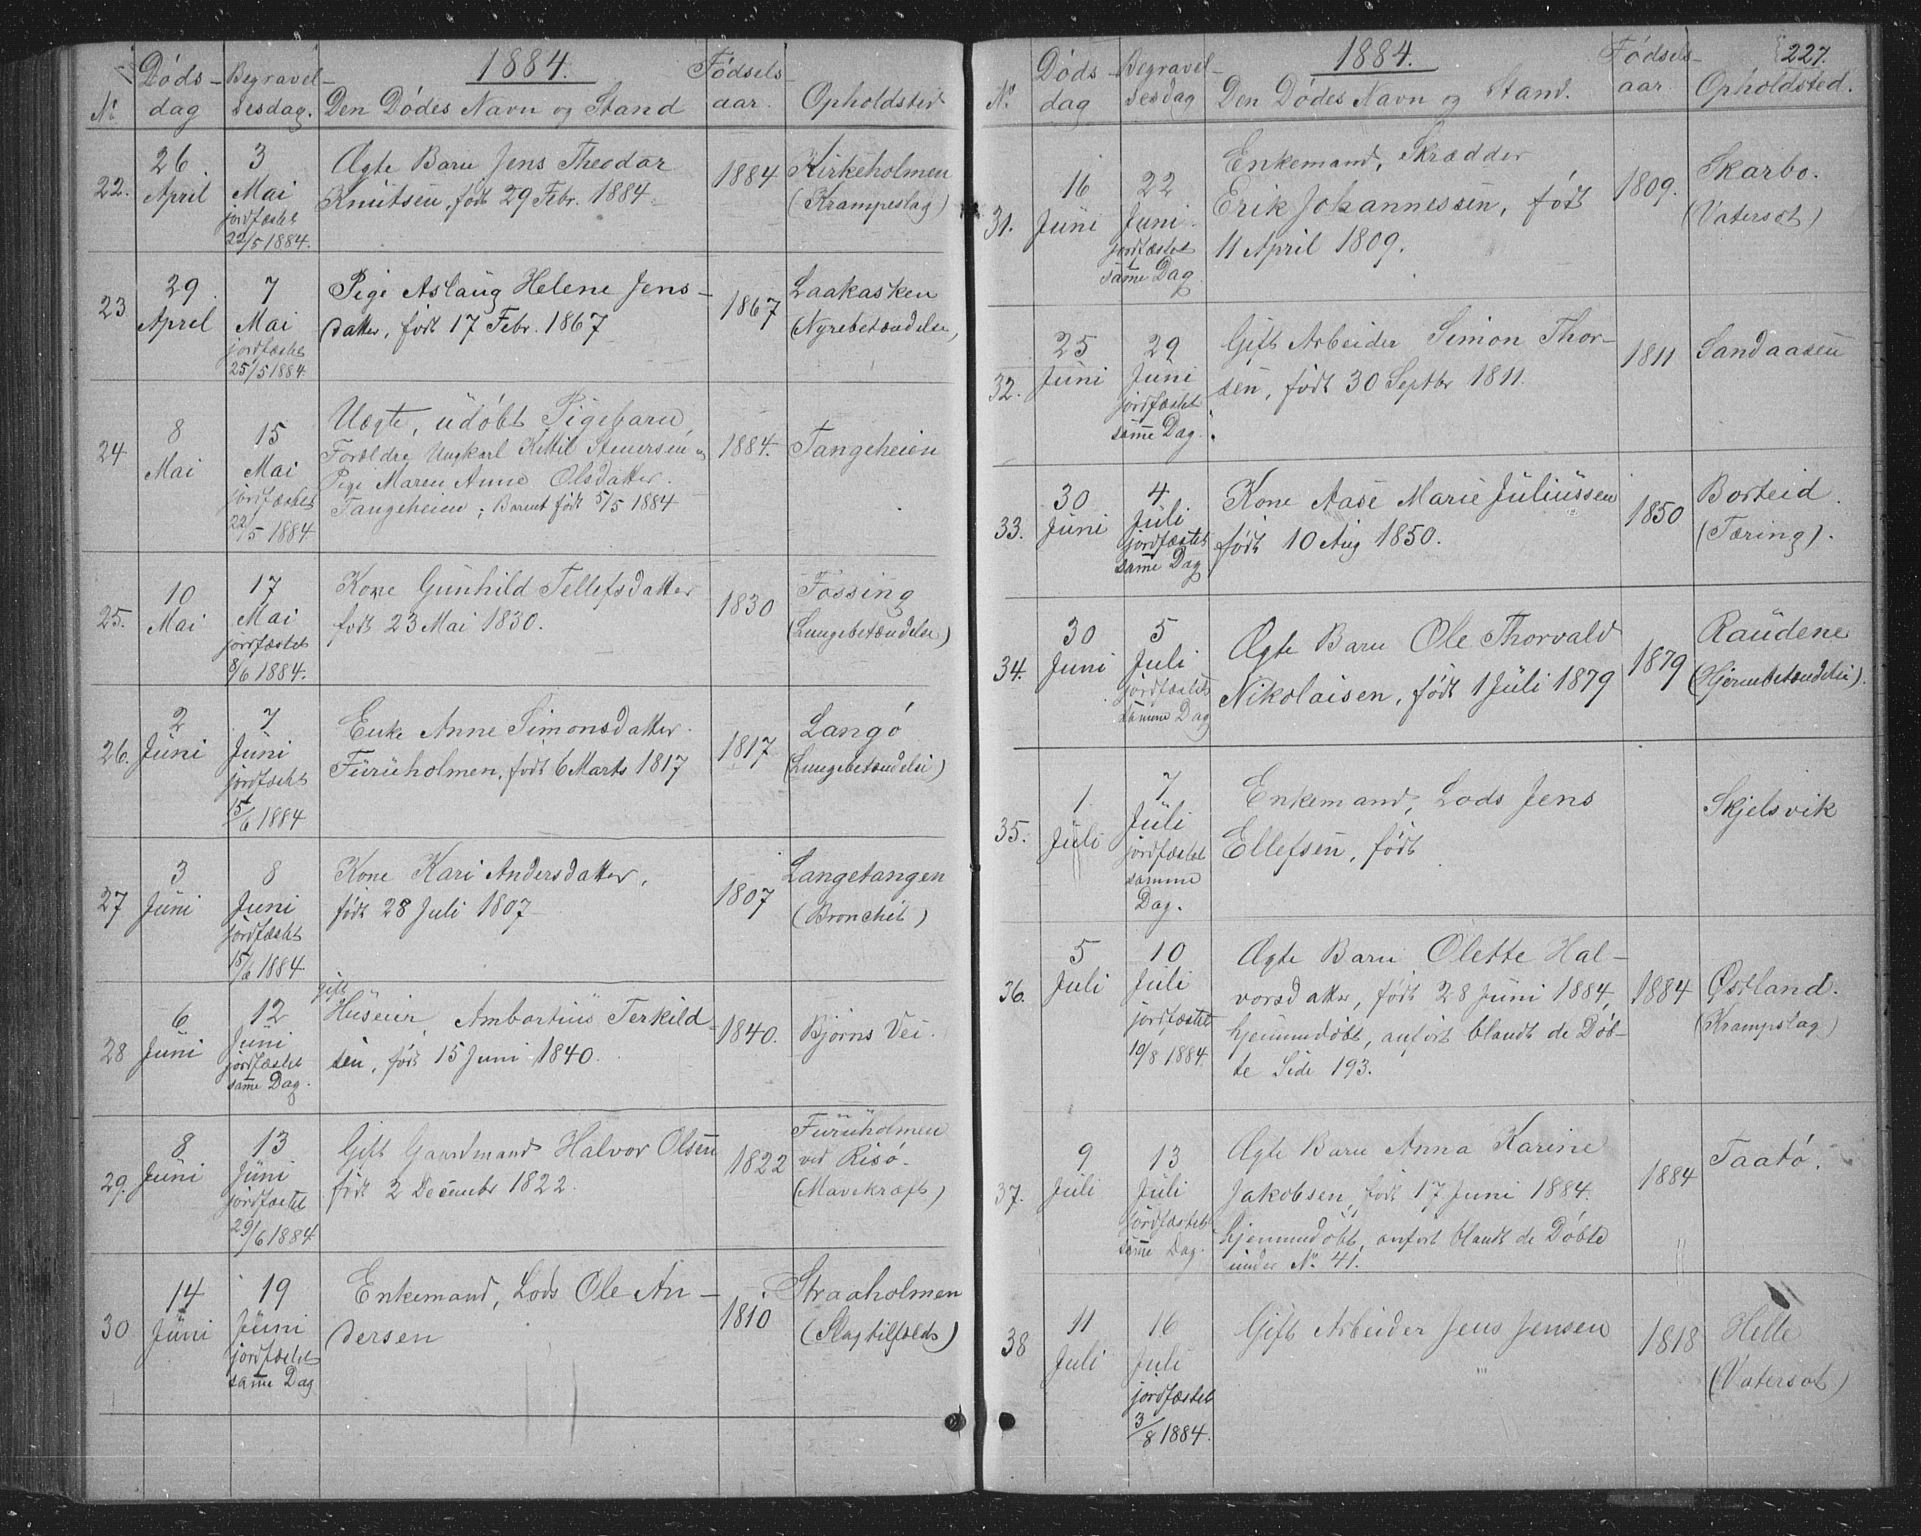 1884.
Nr. Døds-dag Begravel-sesdag. Den Dødes Navn og Stand Fødsels-aar. Opholdsted
22. 26 April 3 Mai jordfæstet 22/5 1884. Ægte Barn Jens Theodor 1884 Kirkeholmen
Knutsen, født 29 Febr. 1884. (Krampeslag)
23 29 April 7 Mai jordfæstet 25/5 1884. Pige Aslaug Helene Jens- 1867 Laakasken
datter, født 17 Febr. 1867 (Nyrebetændelse)
24 8 Mai 15 Mai jordfæstet 22/5 1884 Uægte, udøbt Pigebarn, 1884. Tangeheien
Forældre Ungkarl Kittil Steuersen og
Pige Maren Anne Olsdatter.
Tangeheien; Barnet født 5/5 1884
25. 10 Mai 17 Mai jordfæstet 8/6 1884. Kone Gunhild Tellefsdatter 1830 Fossing
født 23 Mai 1830. (Lungebetændelse)
26. 2 Juni 7 Juni jordfæstet 15/6 1884 Enke Anne Simonsdatter. 1817 Langø
Furuholmen, født 6 Marts 1817 (Lungebetændelse)
27 3 Juni 8 Juni jordfæstet 15/6 1884 Kone Kari Andersdatter, 1807 Langetangen
født 28 Juli 1807 (Bronchit)
28 6 Juni 12 Juni jordfæstet samme Dag. gift
Huseier, Ambortius Terkild- 1840. Bjørns Vei.
sen, født 15 Juni 1840.
29. 8 Juni 13 Juni jordfæstet 29/6 1884 Gift Gaardmand Halvor Olsen 1822 Furuholmen
født 2 Decembr 1822. ved Risø.
(Mavekræft)
30 14 Juni 19 Juni jordfæstet samme Dag Enkemand, Lods Ole An- 1810 Straaholmen
dersen (Slagtilfælde)
1884. 227.
Nr. Døds-dag Begravel-sesdag Den Dødes Navn og Stand. Fødsels-aar. Opholdsted.
31. 16 Juni 22 Juni. jordfæstet samme Dag Enkemand, Skrædder 1809. Skarbo.
Erik Johannessen, født (Vatersot)
11 April 1809.
32. 25 Juni 29 Juni jordfæstet samme Dag. Gift Arbeider Simon Thor- 1811 Sandaasen
sen, født 30 Septbr 1811.
33. 30 Juni 4 Juli jordfæstet samme Dag Kone Aase Marie Juliussen 1850 Borteid.
født 10 Aug 1850. (Tæring).
34. 30 Juni 5 Juli jordfæstet samme Dag Ægte Barn Ole Thorvald 1879 Raudene
Nikolaisen, født 1 Juli 1879 (Hjernebetændelse).
35. 1 Juli 7 Juli jordfæstet samme Dag. Enkemand, Lods Jens Skjelsvik
Ellefsen, født
36. 5 Juli 10 Juli jordfæstet 10/8 1884. Ægte Barn Olette Hal- 1884 Østland.
vorsdatter, født 28 Juni 1884, (Krampslag)
hjemmedøbt, anført blandt de Døb-
te Side 193.
37. 9 Juli 13 Juli jordfæstet samme Dag. Ægte Barn Anna Karine 1884 Taatø.
Jakobsen, født 17 Juni 1884.
hjemmedøbt, anført blandt de Døbte
under No. 41.
38 11 Juli 16 Juli jordfæstet 3/8 1884. Gift Arbeider Jens Jensen 1818 Helle
(Vatersot)